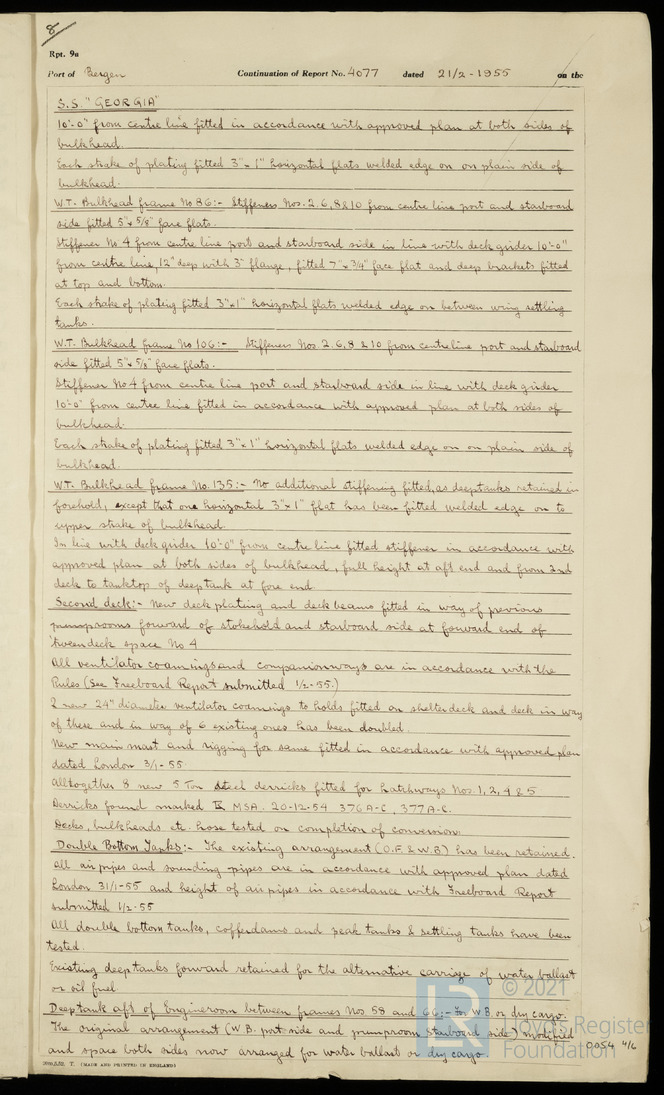 8
Rpt. 9a
Port of Bergen Continuation of Report No. 4077 dated 21/2-1955 on the
S.S. "GEORGIA"
10'-0" from centre line fitted in accordance with approved plan at both sides of
bulkhead.
Each strake of plating fitted 3" x 1" horizontal flats welded edge on on plain side of
bulkhead.
W.T. Bulkhead frame No 86:- Stiffeners Nos. 2, 6, 8 & 10 from centre line port and starboard
side fitted 5" x 5/8" face flats.
Stiffener No 4 from centre line port and starboard side in line with deck girder 10'-0"
from centre line, 12" deep with 3" flange, fitted 7" x 3/4" face flat and deep brackets fitted
at top and bottom.
Each strake of plating fitted 3" x 1" horizontal flats welded edge on between wing settling
tanks.
W.T. Bulkhead frame No 106:- Stiffeners Nos. 2, 6, 8 & 10 from centre line port and starboard
side fitted 5" x 5/8" face flats.
Stiffener No 4 from centre line port and starboard side in line with deck girder
10'-0" from centre line fitted in accordance with approved plan at both sides of
bulkhead.
Each strake of plating fitted 3" x 1" horizontal flats welded edge on on plain side of
bulkhead.
W.T. Bulkhead frame No. 135:- No additional stiffening fitted, as deeptanks retained in
forehold, except that one horizontal 3" x 1" flat has been fitted welded edge on to
upper strake of bulkhead.
In line with deck girder 10'-0" from centre line fitted stiffener in accordance with
approved plan at both sides of bulkhead, full height at aft end and from 2nd
deck to tanktop of deeptank at fore end
Second deck:- New deck plating and deck beams fitted in way of previous
pumprooms forward of stokehold and starboard side at forward end of
'tweendeck space No 4
All ventilator coamings and companionways are in accordance with the
Rules (See Freeboard Report submitted 1/2-55.)
2 new 24" diameter ventilator coamings to holds fitted on shelterdeck and deck in way
of these and in way of 6 existing ones has been doubled.
New main mast and rigging for same fitted in accordance with approved plan
dated London 3/1-55.
Alltogether 8 new 5 Ton steel derricks fitted for hatchways Nos. 1, 2, 4 & 5
Derricks found marked MSA. 20-12-54 376 A-C, 377 A-C.
Decks, bulkheads etc. hose tested on completion of conversion.
Double Bottom Tanks:- The existing arrangement (O.F. & W.B) has been retained.
All air pipes and sounding pipes are in accordance with approved plan dated
London 31/1-55 and height of air pipes in accordance with Freeboard Report
submitted 1/2-55
All double bottom tanks, cofferdams and peak tanks & settling tanks have been
tested.
Existing deep tanks forward retained for the alternative carriage of water ballast
or oil fuel
Deeptank aft of Engineroom between frames Nos 58 and 66:- For W.B. or dry cargo.
The original arrangement (W.B. port side and pumproom starboard side) modified
and space both sides now arranged for water ballast or dry cargo.
0054 4/6
© 2021
LR
Lloyd's Register
Foundation
(MADE AND PRINTED IN ENGLAND)